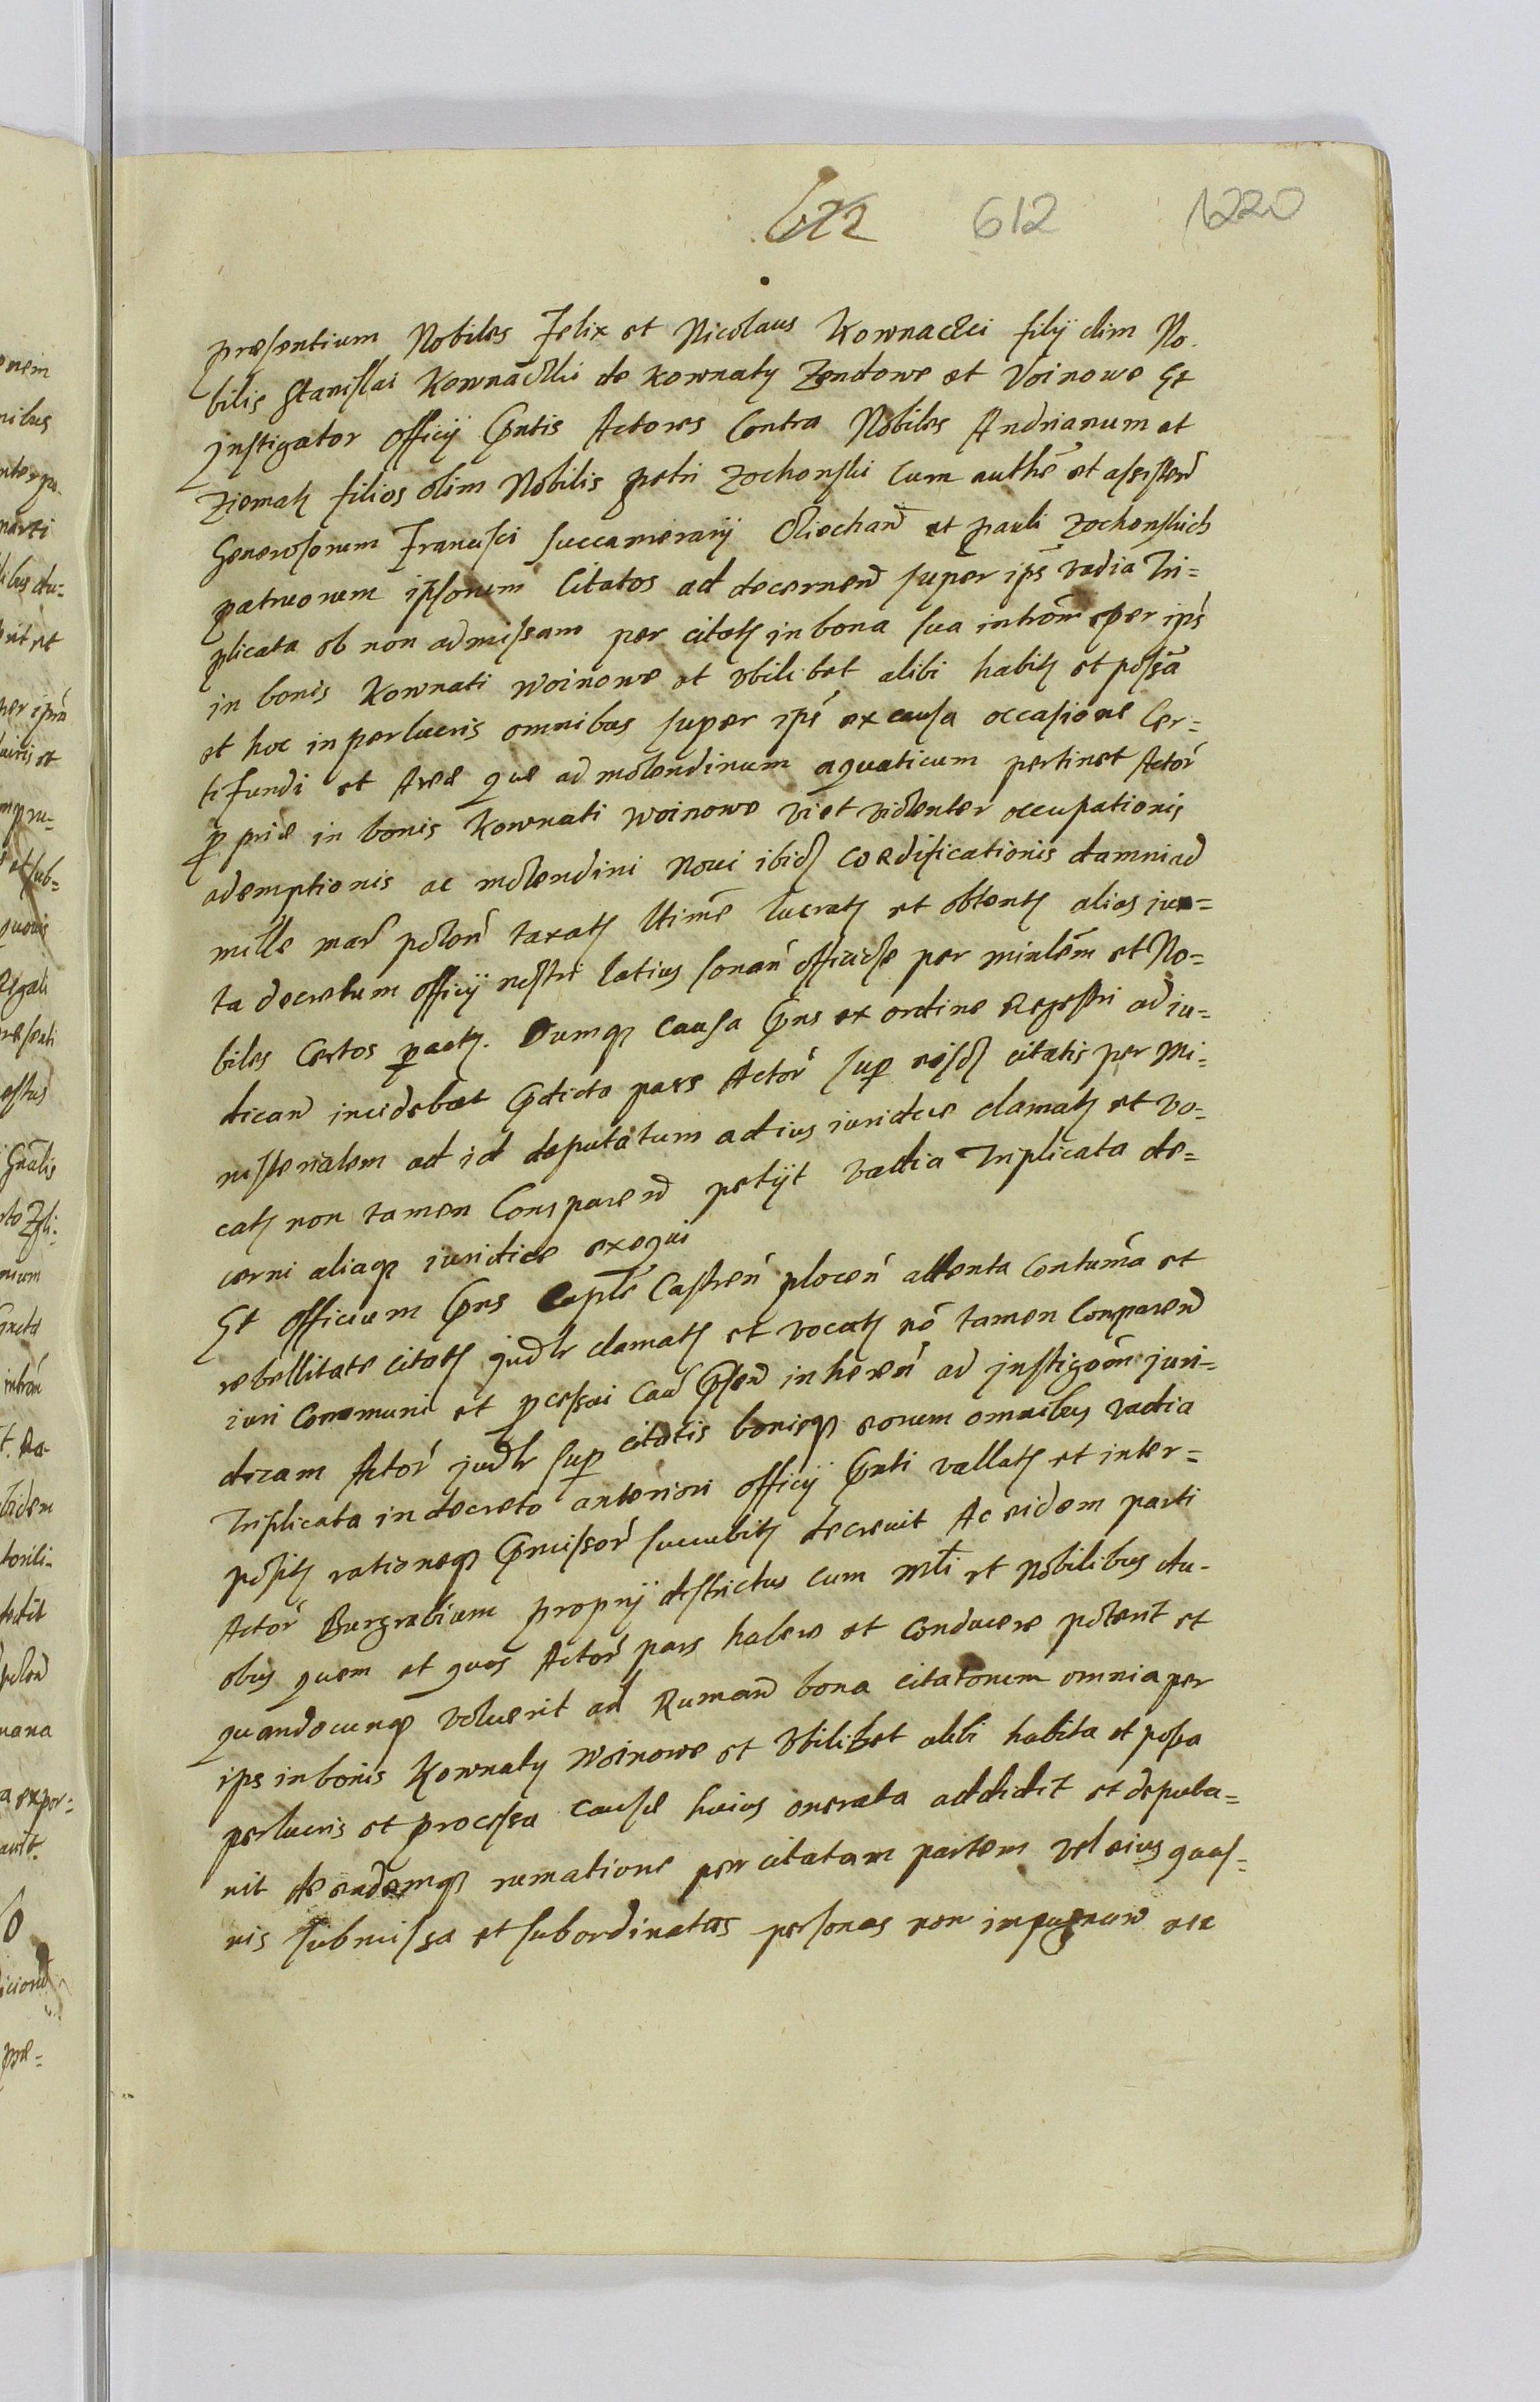 622 612 1220
præsentium Nobiles Felix et Nicolaus Kownaczci filÿ olim No-
bilis Stanislai Kownaczki de Kownaty Zendowe et Voinowe Et
Instigator officÿ Pntis Actores Contra Nobiles Andrianum et
Ziemak filios olim Nobilis petri Zochowski Cum authē et assisten
Generosorum Francisci Succamerarÿ Ciechan et pauli Zochowskich
patruorum ipsorum Citatos ad decernen super ips vadia Tri=
plicata ob non admissam per citat in bona sua introm per ips
in bonis Kownati Woinowe et vbilibet alibi habit et possa
et hoc in perlucris omnibus super ips ex causa occasione Cer=
ti fundi et Areæ quæ ad molendinum aquaticum pertinet Actor
p priæ in bonis Kownati Woinowe vi et violenter occupationis
ademptionis ac molendini Noui ibid coædificationis damniq
mille mar polon taxat ltime lucrat et obtent alias iux=
ta decretum officÿ nostri latius sonan officiose per minlem et No=
biles Certos pact. Dumq Causa Pns ex ordine Regestri ad iu=
dican incidebat Pdicta pars Actor sup eisd citatis per Mi=
nisterialem ad id deputatum ad ius iuridice clamat et vo=
cat non tamen Comparen petÿt vadia Triplicata de=
cerni aliaq iuridice exequi
Et Officium Pns Caple Castren plocen attenta Contuma et
rebellitate citat judlr clamat et vocat nō tamen Comparen
iuri Communi et pcessui Cau Psen inheren ad instigaōm juri=
dicam Actor judlr sup citatis bonisq eorum omnibus vadia
Triplicata in decreto anteriori officÿ Pnti vallat et inter=
posit rationeq Pmissor succubit decreuit Ac eidem parti
Actor Burgrabium proprÿ districtus cum Mli et Nobilibus du-
obus quem et quos Actor pars habere et conducere potent et
quandocunq voluerit ad Ruman bona citatorum omnia per
ips in bonis Kownaty Woinowe et Vbilibet alibi habita et possa
perlucris et processa causæ huius onerata addidit et deputa=
uit de eademq rumatione per citatam partem vel eius quas=
uis submissa et subordinatas personas non impugnan nec